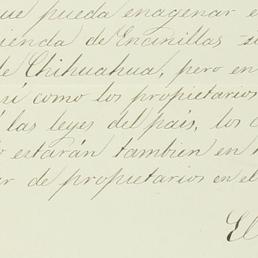 que pueda enagenar e
ienda de Encinillas
de Chihuahua, pero en
si como los propietarios
á las leyes del país, los
estarán tambien en
ar de propietarios en el
El